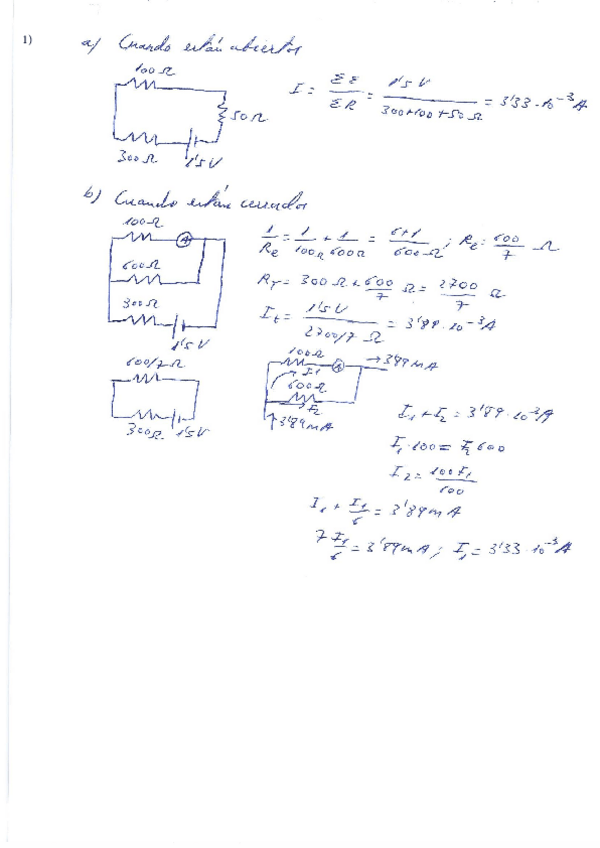 1)
a) Cuando están abiertos
100Ω
50Ω
300Ω
1'5V
I = ΣE/ΣR = 1'5V/(300+100+50 Ω) = 3'33·10⁻³A
b) Cuando están cerrados
100Ω
A
600Ω
300Ω
1'5V
1/Re = 1/100Ω + 1/600Ω = (6+1)/600Ω ; Re = 600/7 Ω
RT = 300 Ω + 600/7 Ω = 2700/7 Ω
It = 1'5V/(2700/7 Ω) = 3'89·10⁻³A
600/7Ω
300Ω 1'5V
100Ω
A
→ 3'89mA
I1
600Ω
I2
↑3'89mA
I1 + I2 = 3'89·10⁻³A
I1·100 = I2 600
I2 = 100I1/600
I1 + I1/6 = 3'89mA
7 I1/6 = 3'89mA ; I1 = 3'33·10⁻³A